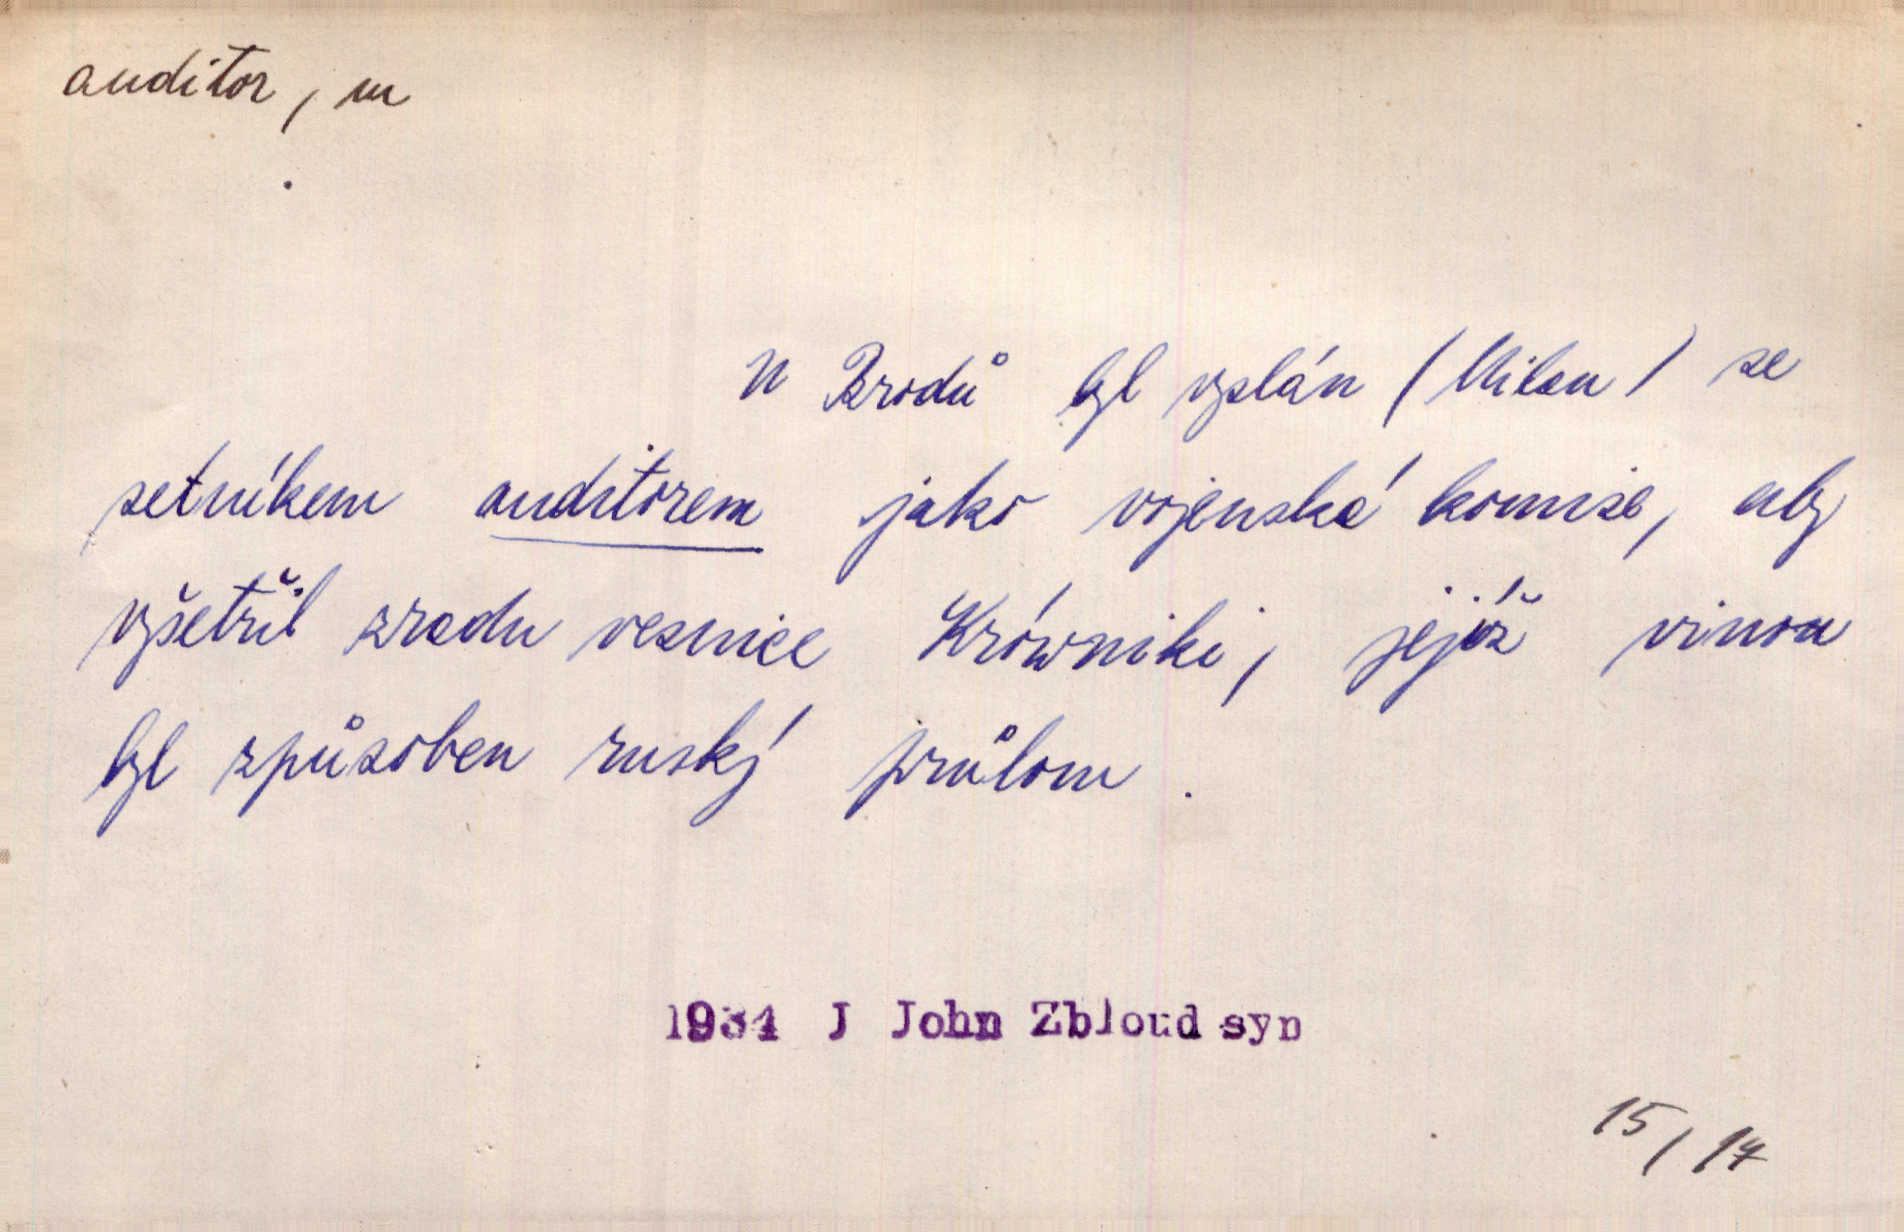 auditor, m
U Brodů byl vyslán (Milan) se
setníkem auditorem jako vojenská komise, aby
vyšetřil zradu vesnice Krówniki, jejíž vinou
byl způsoben ruský průlom.
1934 J John Zbloud syn
15/14